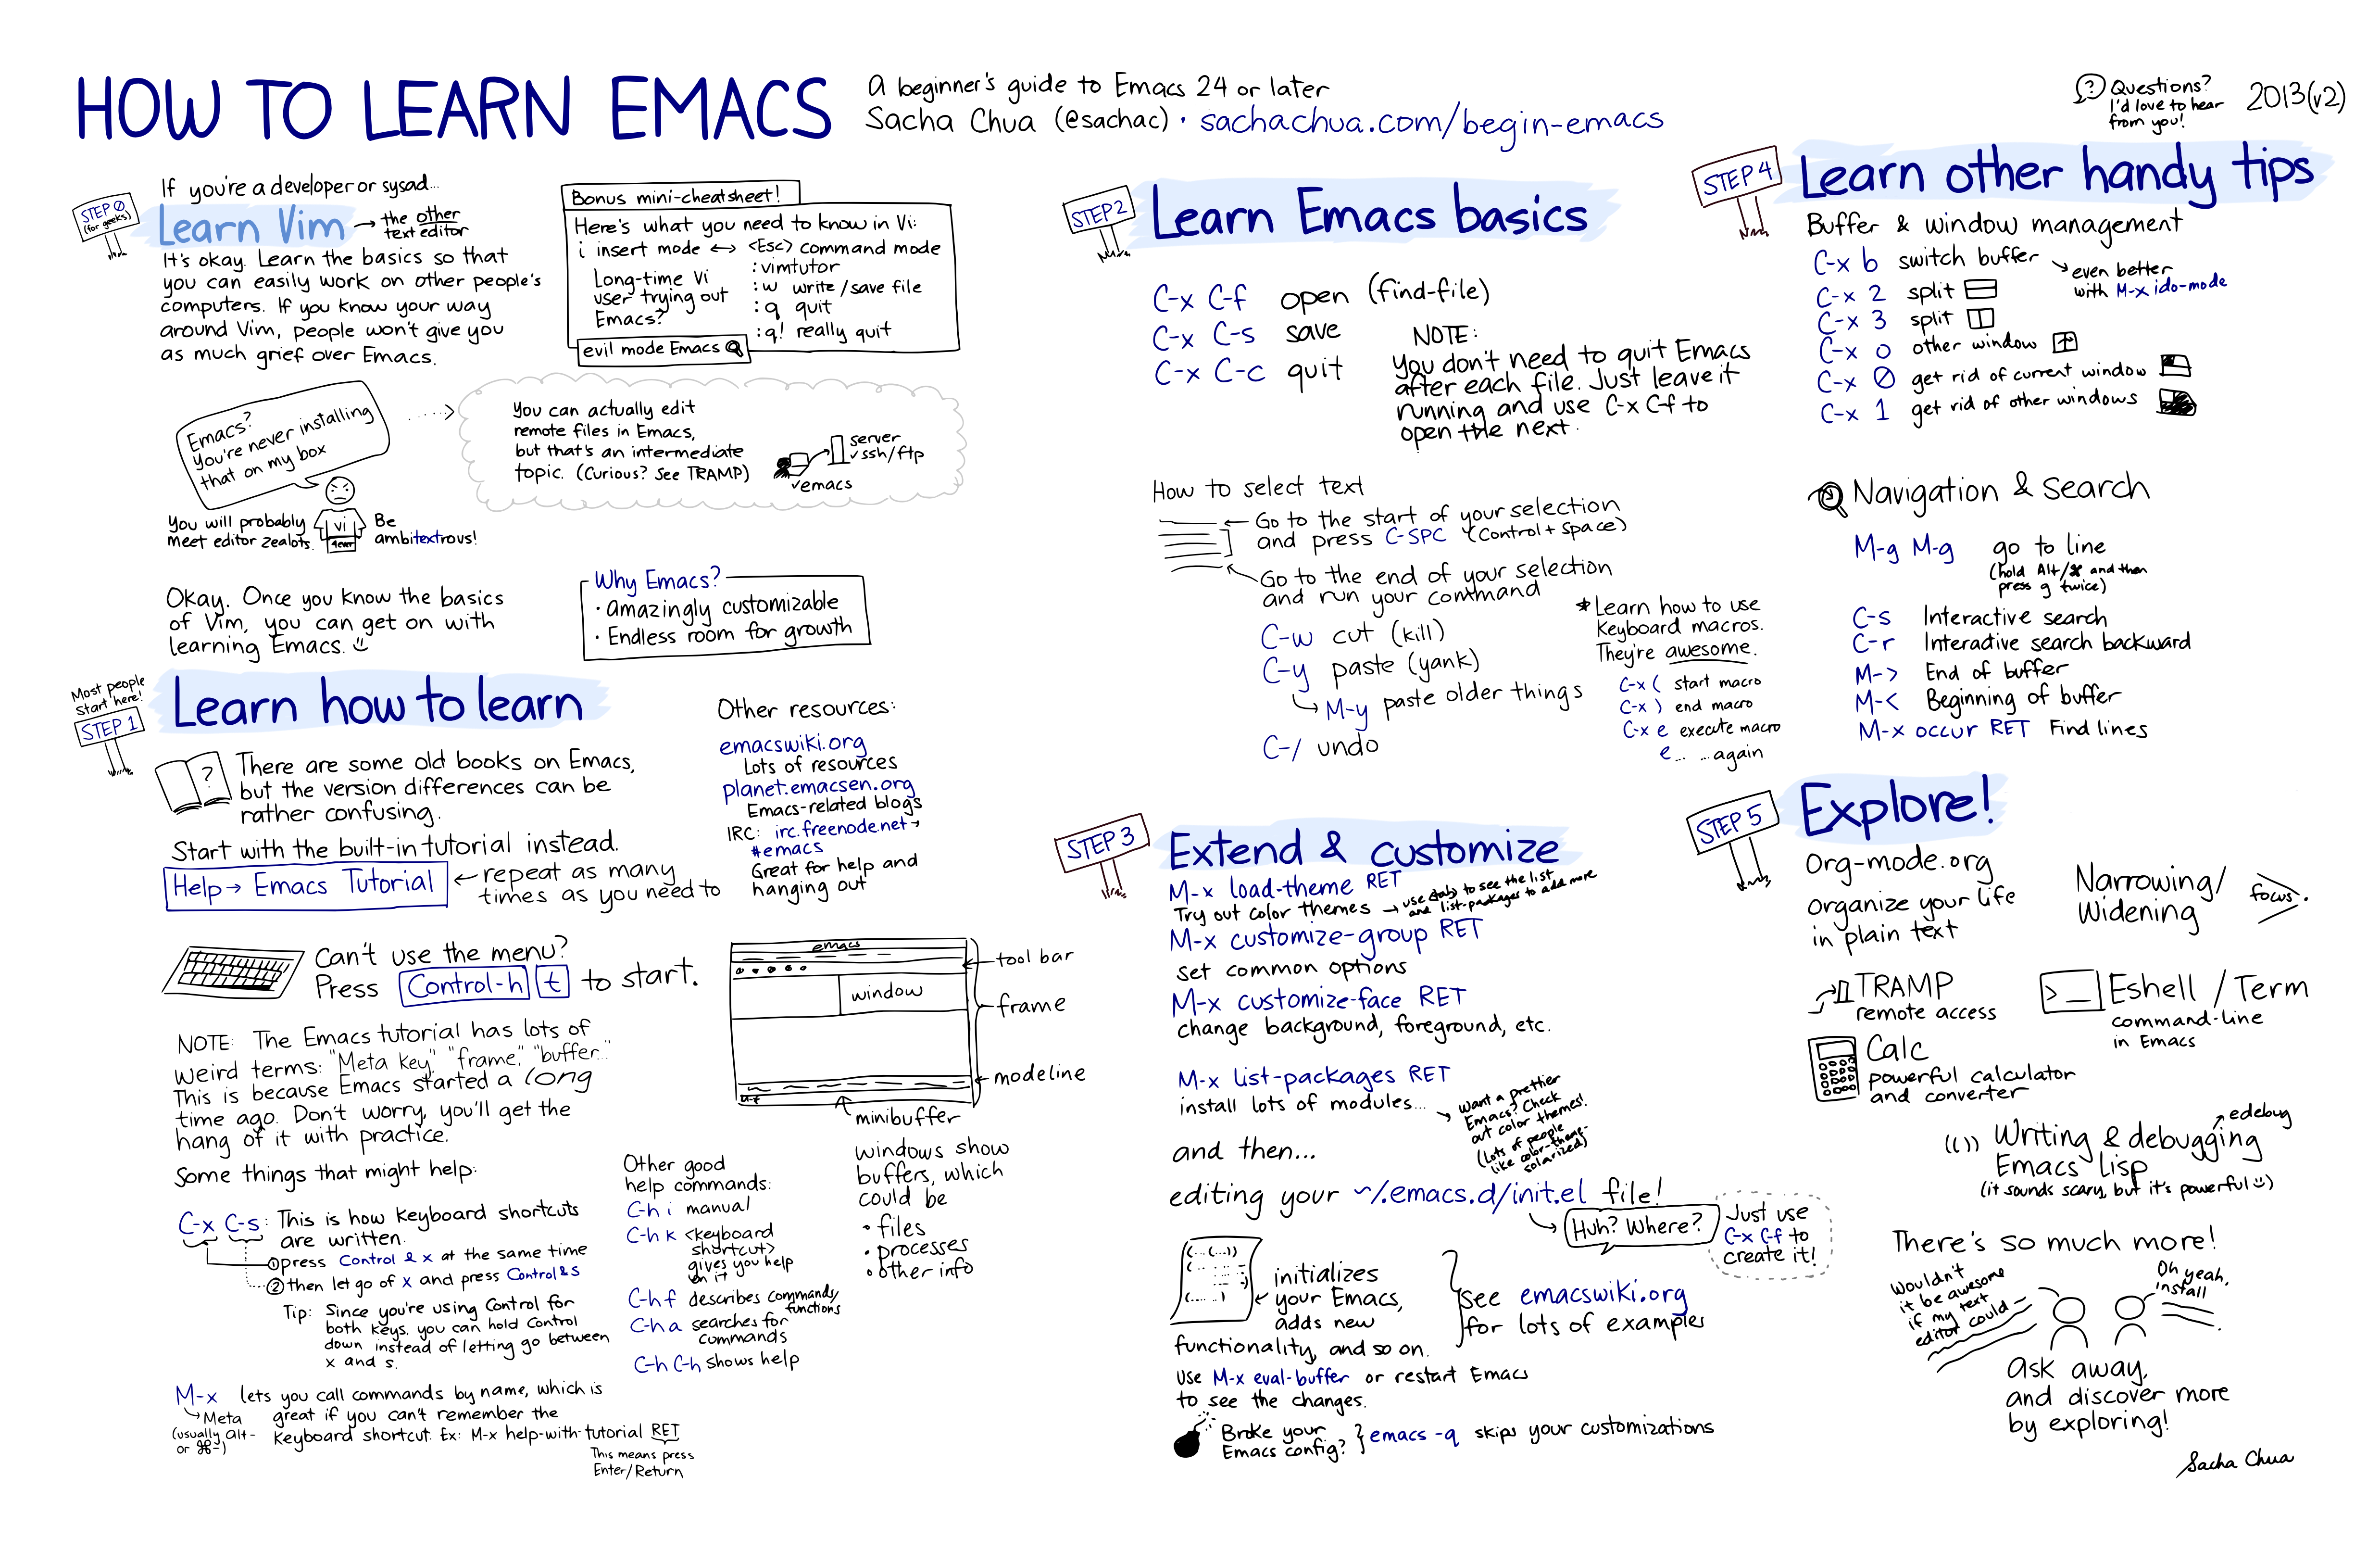 HOW TO LEARN EMACS
A beginner's guide to Emacs 24 or later
Sacha Chua (@sachac) · sachachua.com/begin-emacs
Questions?
I'd love to hear
from you!
2013(v2)
STEP 0
(for geeks)
If you're a developer or sysad...
Learn Vim
→ the other
text editor
It's okay. Learn the basics so that
you can easily work on other people's
computers. If you know your way
around Vim, people won't give you
as much grief over Emacs.
Bonus mini-cheatsheet!
Here's what you need to know in Vi:
i insert mode ↔ <Esc> command mode
:vimtutor
:w write/save file
:q quit
:q! really quit
Long-time Vi
user trying out
Emacs?
evil mode Emacs
Emacs?
You're never installing
that on my box
You will probably
meet editor zealots.
vi
4ever
Be
ambitextrous!
You can actually edit
remote files in Emacs,
but that's an intermediate
topic. (Curious? See TRAMP)
server
✓ssh/ftp
✓emacs
Okay. Once you know the basics
of Vim, you can get on with
learning Emacs.
Why Emacs?
· amazingly customizable
· Endless room for growth
Most people
start here!
STEP 1
Learn how to learn
?
There are some old books on Emacs,
but the version differences can be
rather confusing.
Start with the built-in tutorial instead.
Help → Emacs Tutorial
← repeat as many
times as you need to
Other resources:
emacswiki.org
Lots of resources
planet.emacsen.org
Emacs-related blogs
IRC: irc.freenode.net →
#emacs
Great for help and
hanging out
Can't use the menu?
Press Control-h t to start.
NOTE: The Emacs tutorial has lots of
weird terms: "Meta key," "frame," "buffer..."
This is because Emacs started a long
time ago. Don't worry, you'll get the
hang of it with practice.
emacs
window
tool bar
frame
modeline
minibuffer
M-x
windows show
buffers, which
could be
· files
· processes
· other info
Some things that might help:
C-x C-s: This is how keyboard shortcuts
are written.
① press Control & x at the same time
② then let go of x and press Control & s
Tip: Since you're using Control for
both keys, you can hold Control
down instead of letting go between
x and s.
Other good
help commands:
C-h i manual
C-h k <keyboard
shortcut>
gives you help
on it
C-h f describes commands/
functions
C-h a searches for
commands
C-h C-h shows help
M-x lets you call commands by name, which is
great if you can't remember the
keyboard shortcut. Ex: M-x help-with-tutorial RET
→ Meta
(usually Alt-
or ⌘-)
This means press
Enter/Return
STEP 2
Learn Emacs basics
C-x C-f open (find-file)
C-x C-s save
C-x C-c quit
NOTE:
You don't need to quit Emacs
after each file. Just leave it
running and use C-x C-f to
open the next.
How to select text
← Go to the start of your selection
and press C-SPC (Control + Space)
Go to the end of your selection
and run your command
C-w cut (kill)
C-y paste (yank)
→ M-y paste older things
C-/ undo
* Learn how to use
keyboard macros.
They're awesome.
C-x ( start macro
C-x ) end macro
C-x e execute macro
e... ...again
STEP 3
Extend & customize
M-x load-theme RET
Try out color themes → use <tab> to see the list
and list-packages to add more
M-x customize-group RET
set common options
M-x customize-face RET
change background, foreground, etc.
M-x list-packages RET
install lots of modules...
Want a prettier
Emacs? Check
out color themes!
(Lots of people
like color-theme-
solarized)
and then...
editing your ~/.emacs.d/init.el file!
Huh? Where?
Just use
C-x C-f to
create it!
(... (...))
(... ...)
initializes
your Emacs,
adds new
functionality, and so on.
see emacswiki.org
for lots of examples
use M-x eval-buffer or restart Emacs
to see the changes.
Broke your
Emacs config?
emacs -q skips your customizations
STEP 4
Learn other handy tips
Buffer & window management
C-x b switch buffer
even better
with M-x ido-mode
C-x 2 split
C-x 3 split
C-x o other window
C-x 0 get rid of current window
C-x 1 get rid of other windows
Navigation & Search
M-g M-g go to line
(hold Alt/⌘ and then
press g twice)
C-s Interactive search
C-r Interactive search backward
M-> End of buffer
M-< Beginning of buffer
M-x occur RET Find lines
STEP 5
Explore!
Org-mode.org
organize your life
in plain text
Narrowing/
Widening
focus.
TRAMP
remote access
>_ Eshell / Term
command-line
in Emacs
Calc
powerful calculator
and converter
(()) Writing & debugging
Emacs Lisp
edebug
(it sounds scary, but it's powerful)
There's so much more!
Wouldn't
it be awesome
if my text
editor could
Oh yeah,
install
ask away,
and discover more
by exploring!
Sacha Chua